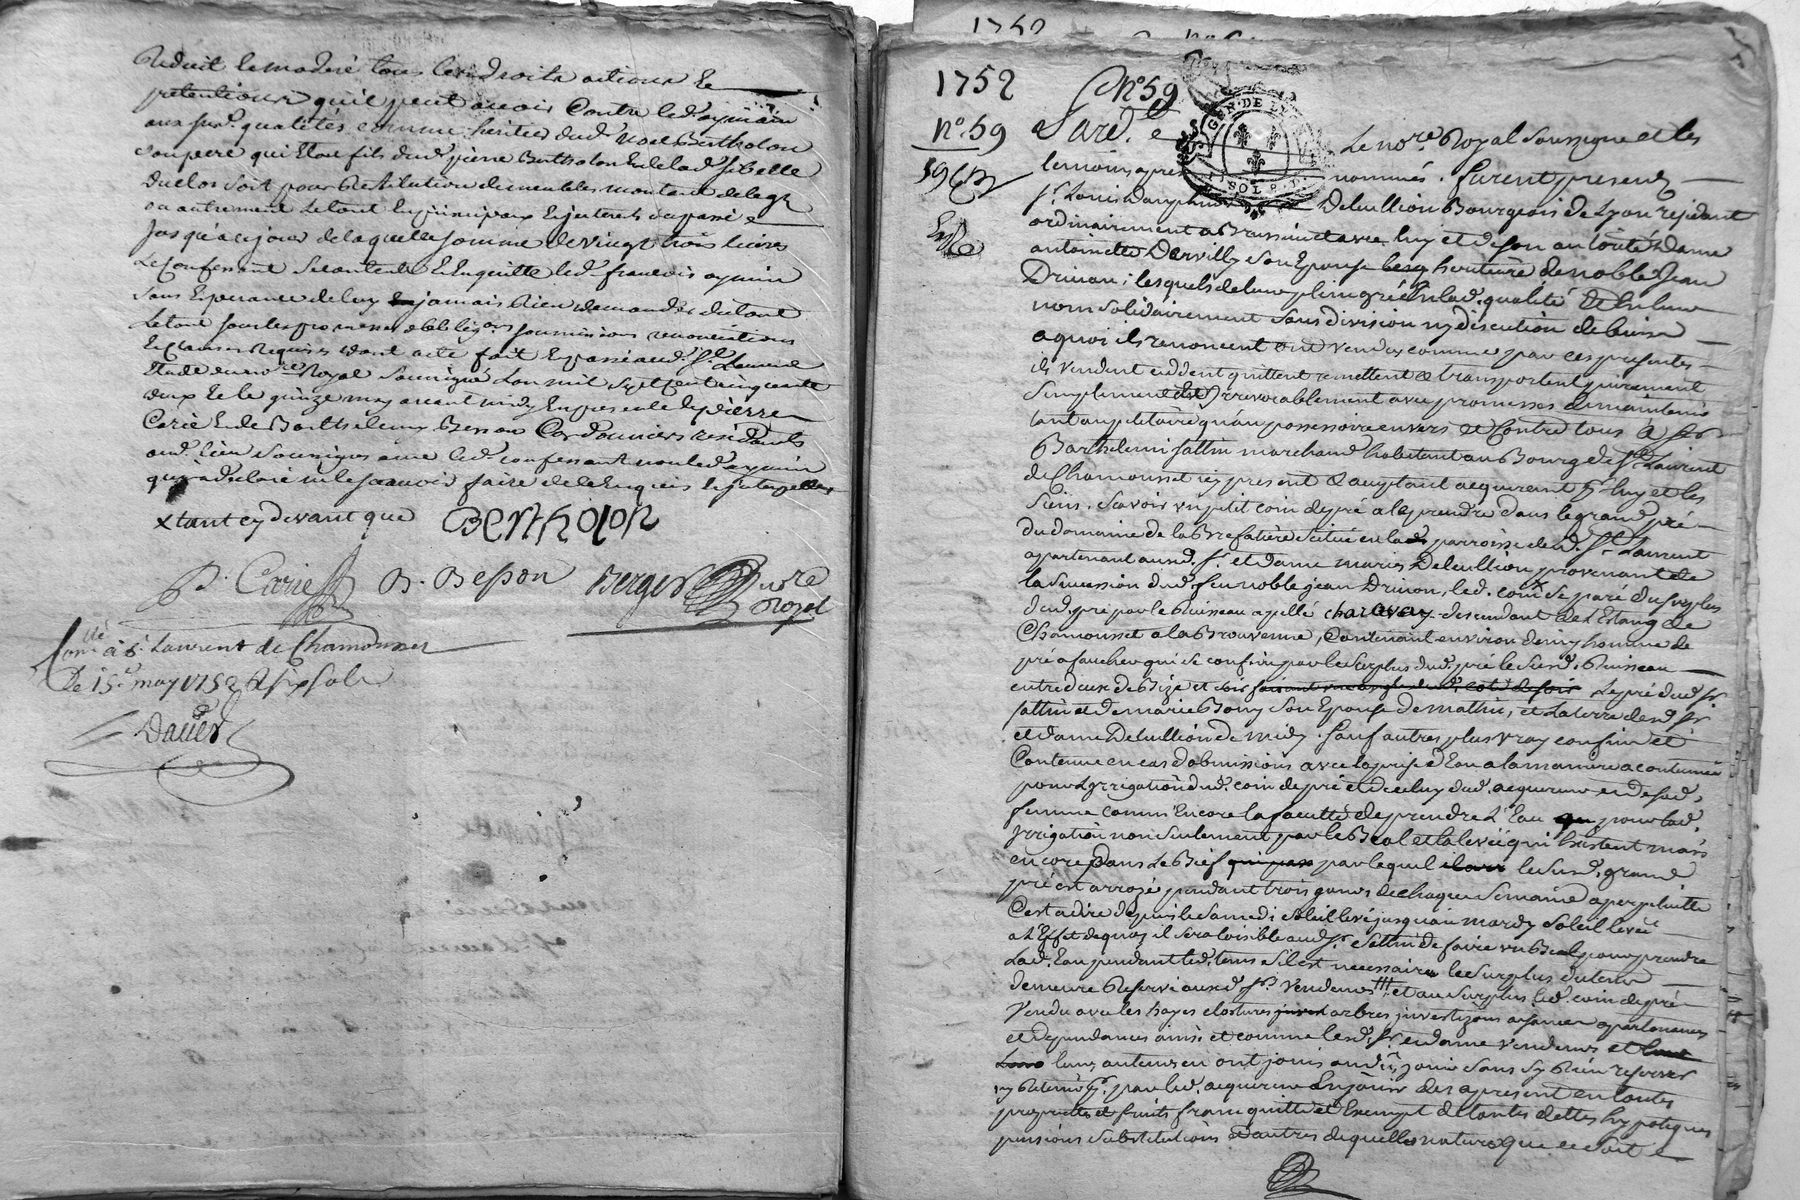 Reduit et moderé tous les droits actions et
pretentions qu'il peut avoir Contre led. aymain
aux susd. qualités comme heritier dud. Noel Bertholon
son pere qui Etoit fils dud. pierre Bertholon et de lad. sibelle
duclos soit pour Restitution de meubles montant de legs
ou autrement le tout en principaux interets du passé
jusqu'a ce jour de laquelle somme de vingt trois livres
le Confessant se contente et En quitte led. francois aymain
sans Esperance de luy jamais Rien demander du tout
le tout sous les promesses obligaons soumissions renonciations
Et clauses Requises dont acte fait et passé aud. St Laurent
Etude du nore Royal soussigné L'an mil sept Cent cinquante
deux Et le quinze may avant midy En presence de pierre
Carié et de Barthelemy Besson Cordonniers residants
aud. lieu soussignés avec led. confessant non led. aymain
qui a declaré ne le scavoir faire de ce Enquis
x tant cy devant que Bertholon
P. Carié B. Besson Berger nore Royal
Conllé à St Laurent de Chamousset
le 15e may 1752 R six sols
Dauer
1752
1752 No 59
No 59
Pard. e Le nore Royal soussigné et les
temoins apres nommés. furent presents
Sr Louis Dauphin Debullion Bourgeois de Lyon residant
ordinairement a Brussieu et avec luy et de son autorité Dame
antoinette Dervilly son Epouse heritiere de noble Jean
Drivon; lesquels de leur plein gré En lad. qualité et En leur
nom solidairement sans division ny discution de biens
a quoi ils renoncent ont vendu comme par ces presentes
ils vendent cedent quittent remettent et transportent purement
simplement et irrevocablement avec promesses de maintenir
tant au petitoire qu'au possessoire envers et Contre tous à Sr
Barthelemi fattin marchand habitant au Bourg de St Laurent
de Chamousset icy present et acceptant acquereur pr luy et les
siens. Scavoir un petit coin de pré a le prendre dans le grand pré
du domaine de la Bressatiere scitué en la parroisse dud. St Laurent
apartenant auxd. Sr et dame mariés Debullion provenant de
la succession dud. feu noble jean Drivon, led. coin separé du surplus
dud. pré par le Ruisseau apellé charavay descendant de l'Etang de
Chamousset a la Brevenne, Contenant environ demy homme de
pré a faucher qui se confine par le surplus dud. pré le susd. Ruisseau
entre deux de Bize et soir le pré dud. Sr
fattin et de marie Bony son Epouse de matin, et la terre desd. Sr
et dame Debullion de midy. Sauf autres plus vray confins et
Contenue en cas d'obmissions avec la prise d'Eau a la maniere acoutumée
pour L'irrigation dud. coin de pré et de celuy dud. acquereur et de sad.
femme comm'Encore la faculté de prendre L'Eau pour lad.
irrigation non seulement par le Béal et la levée qui Existent mais
encore dans le Bief par lequel le susd. grand
pré est arrosé pendant trois jours de chaque semaine a perpetuité
C'est a dire depuis le samedi soleil levé jusqu'au mardy soleil levé
a L'Effet de quoy il sera loisible aud. Sr fattin de faire un Béal pour prendre
Lad. Eau pendant led. tems s'il est necessaire le surplus du tems
demeure Reservé auxd. Sr vendeurs et au surplus led. coin de pré
Vendu avec les hayes clotures arbres investizons aisances apartenances
et dependances ainsi et comme lesd. Sr et dame vendeurs
leurs auteurs en ont joui ou dû jouir sans s'y Rien reserver
ny Retenir pr par led. acquereur En jouir des a present en toutes
proprietés et fruits franc quitte et Exempt de toutes dettes hypoteques
pensions substitutions D'autres de quelle nature que ce soit